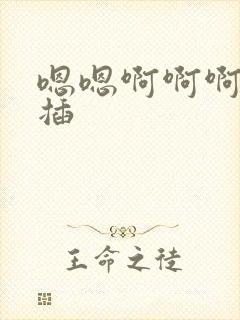 嗯嗯啊啊啊
插
王命之徒